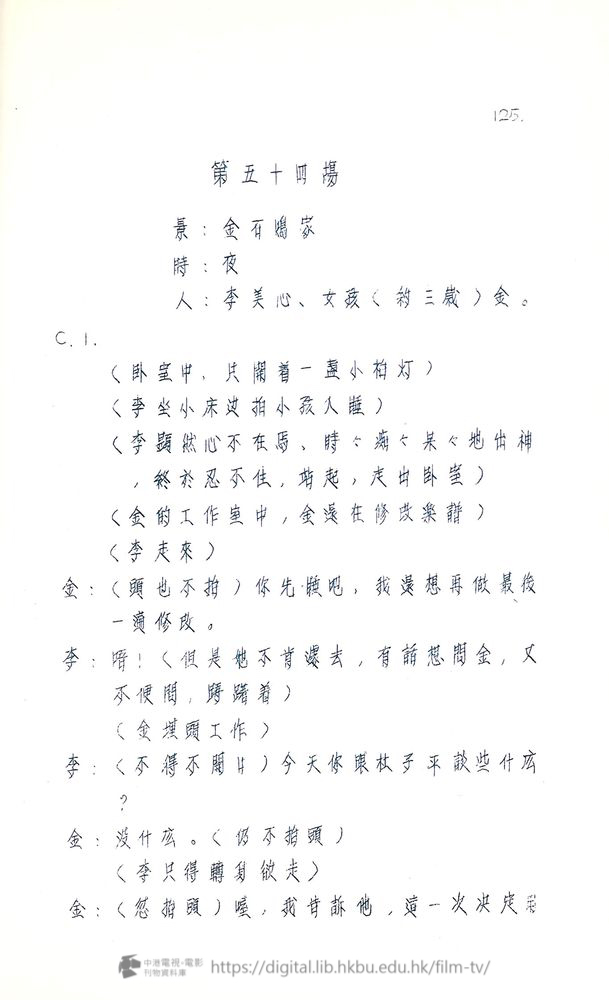 125.
第五十四場
景：金石鳴家
時：夜
人：李美心、女孩（約三歲）金。
C.1.
（卧室中，只開着一盞小枱灯）
（李坐小床边拍小孩入睡）
（李顯然心不在焉、時々痴々呆々地出神
，終於忍不住，站起，走出卧室）
（金的工作室中，金還在修改樂譜）
（李走來）
金：（頭也不抬）你先睡吧，我還想再做最後
一遍修改。
李：唔！（但是她不肯離去，有話想問金，又
不便問，躊躇着）
（金埋頭工作）
李：（不得不開口）今天你跟杜子平談些什庅
？
金：沒什庅。（仍不抬頭）
（李只得轉身欲走）
金：（忽抬頭）喔，我告訴他，這一次決定
中港電視・電影
刊物資料庫
https://digital.lib.hkbu.edu.hk/film-tv/